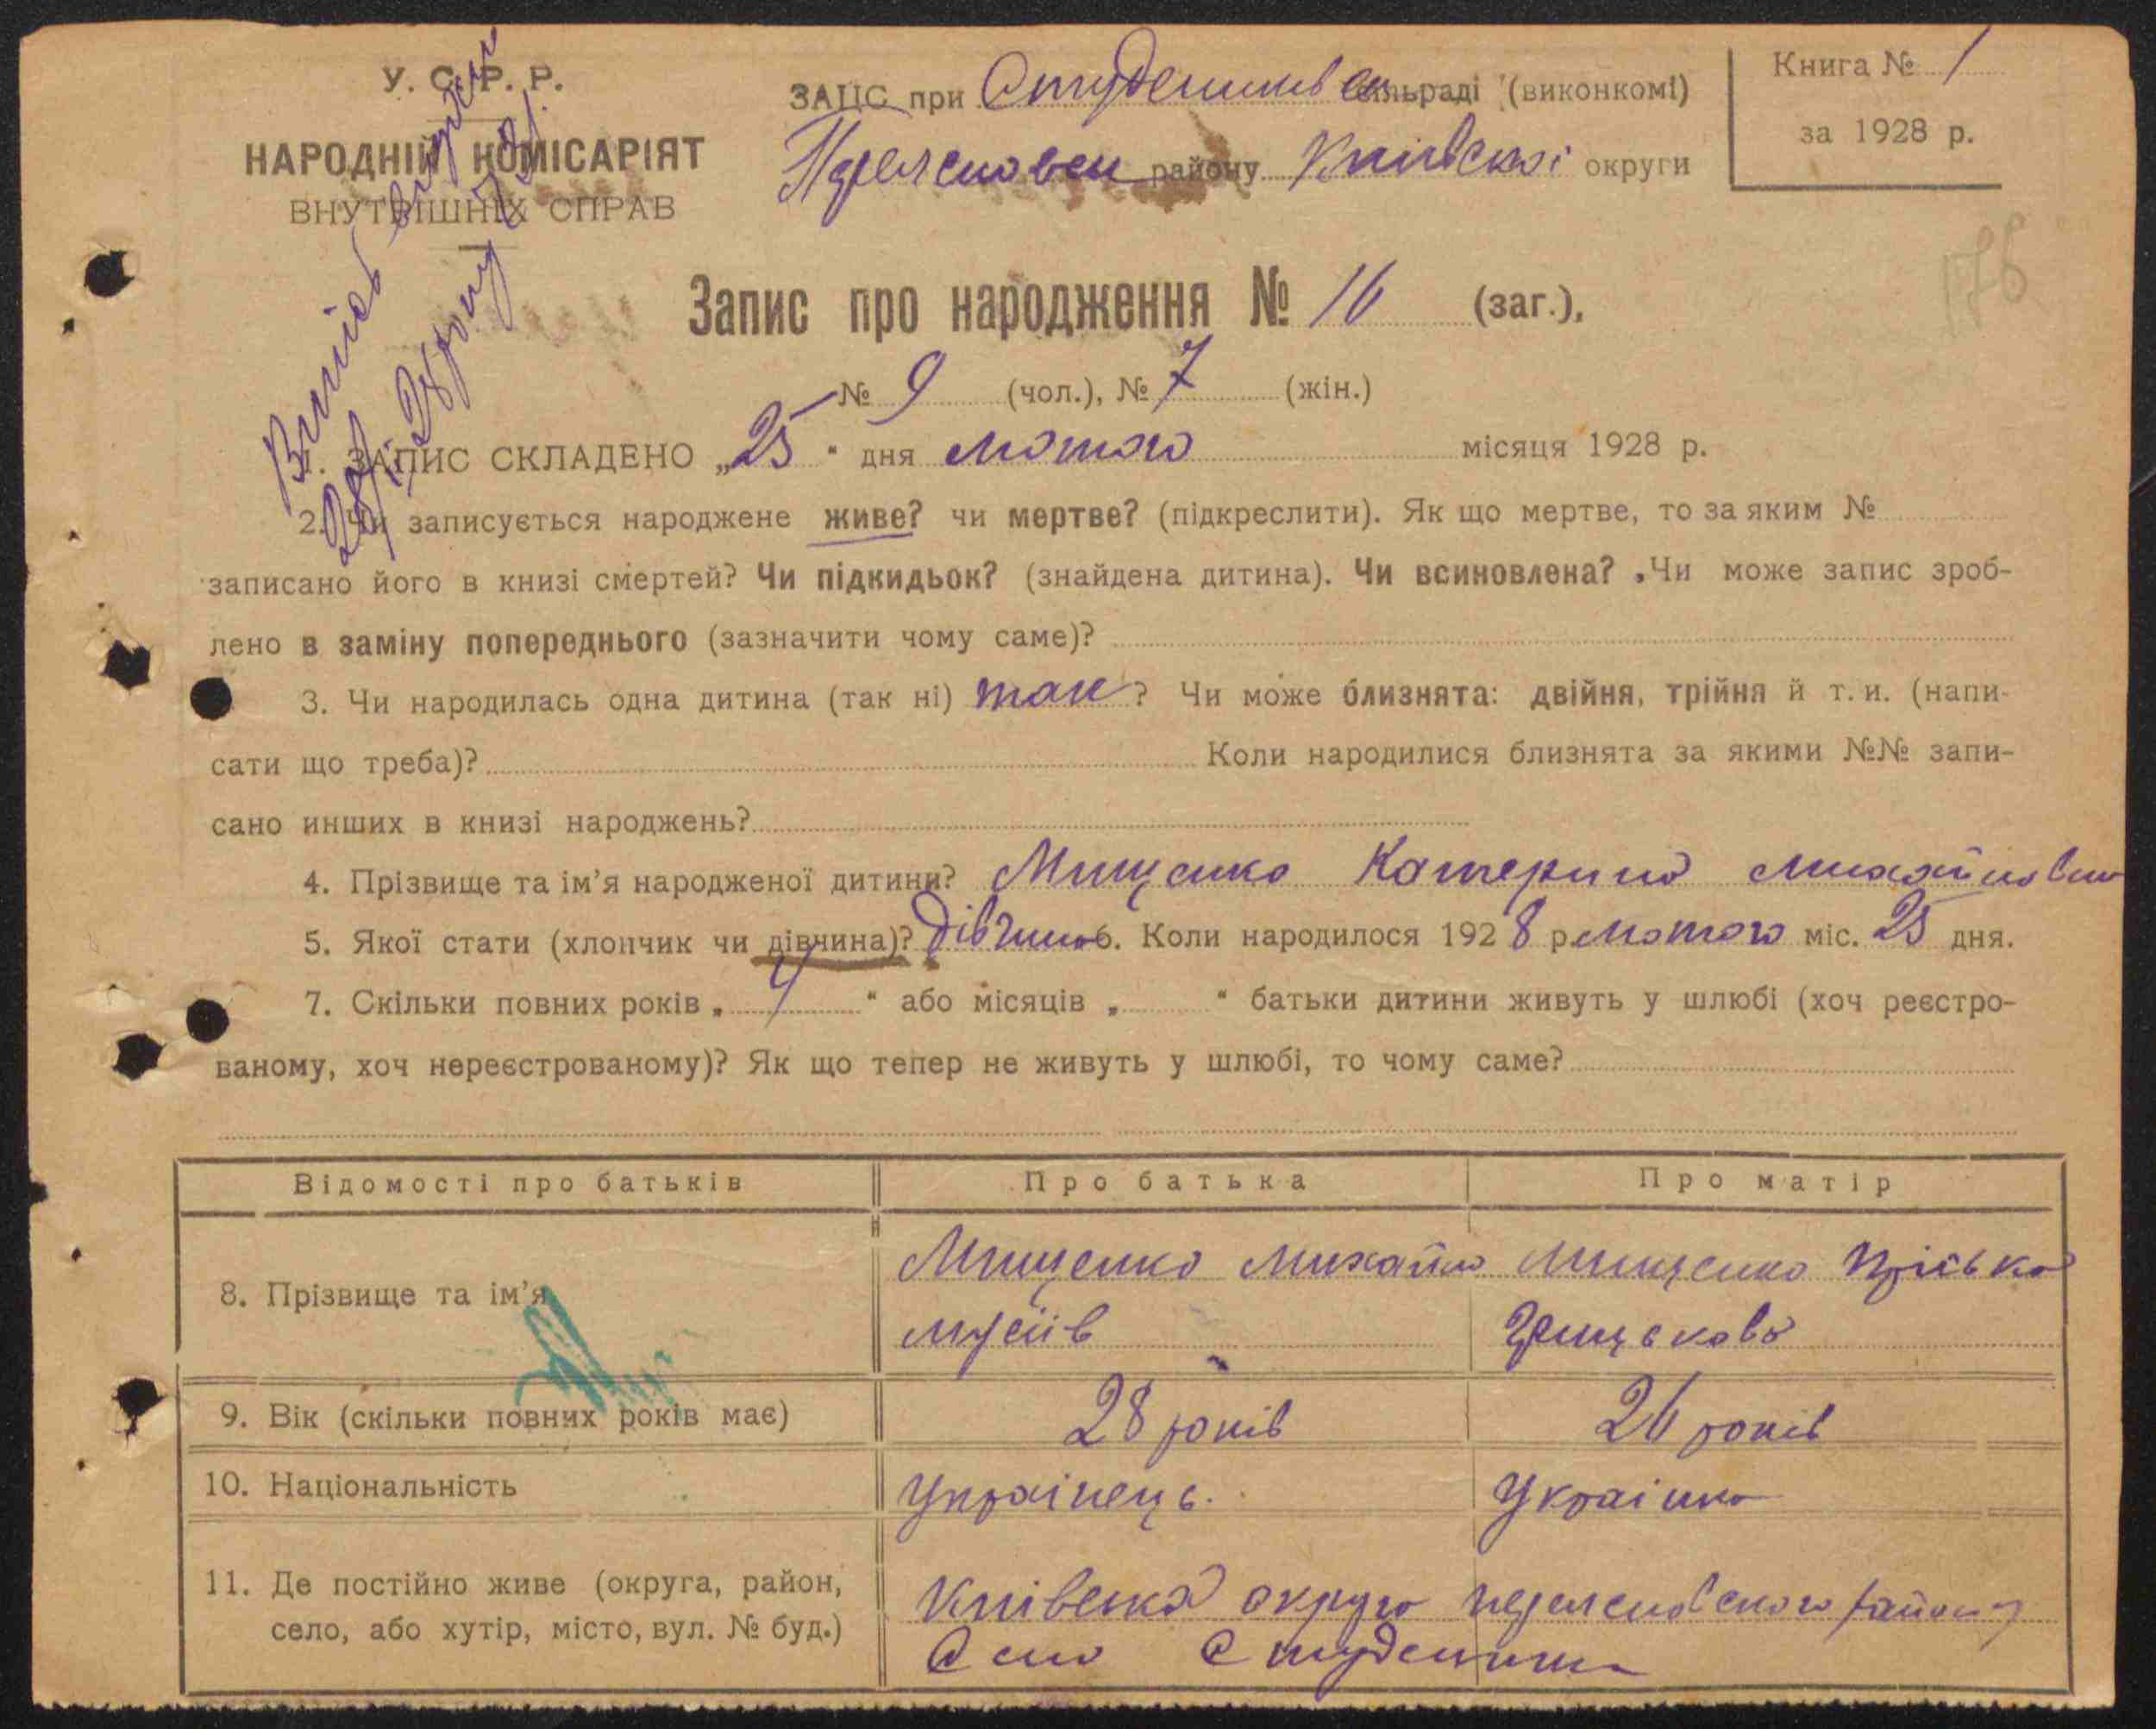 У. С. Р. Р.
НАРОДНІЙ КОМІСАРІЯТ
ВНУТРІШНІХ СПРАВ
ЗАЦС при сільраді (виконкомі)
району Київської округи
Книга № 1
за 1928 р.
176
Запис про народження № 16 (заг.),
№ 9 (чол.), № 7 (жін.)
1. ЗАПИС СКЛАДЕНО „25" дня лютого місяця 1928 р.
2. Чи записується народжене живе? чи мертве? (підкреслити). Як що мертве, то за яким №
записано його в книзі смертей? Чи підкидьок? (знайдена дитина). Чи всиновлена? Чи може запис зроб-
лено в заміну попереднього (зазначити чому саме)?
3. Чи народилась одна дитина (так ні) так? Чи може близнята: двійня, трійня й т. и. (напи-
сати що треба)? Коли народилися близнята за якими №№ запи-
сано инших в книзі народжень?
4. Прізвище та ім'я народженої дитини? Мищенко Катерина Михайловна
5. Якої стати (хлопчик чи дівчина)? Дівчина 6. Коли народилося 1928 р. лютого міс. 25 дня.
7. Скільки повних років „ 4 " або місяців „ " батьки дитини живуть у шлюбі (хоч реєстро-
ваному, хоч нереєстрованому)? Як що тепер не живуть у шлюбі, то чому саме?
Відомості про батьків Про батька Про матір
8. Прізвище та ім'я Мищенко Михайло Мищенко Пріська
Мусіїв Грицькова
9. Вік (скільки повних років має) 28 років 26 років
10. Національність Українець. Українка
11. Де постійно живе (округа, район, Київська округа району
село, або хутір, місто, вул. № буд.) Село Студеники